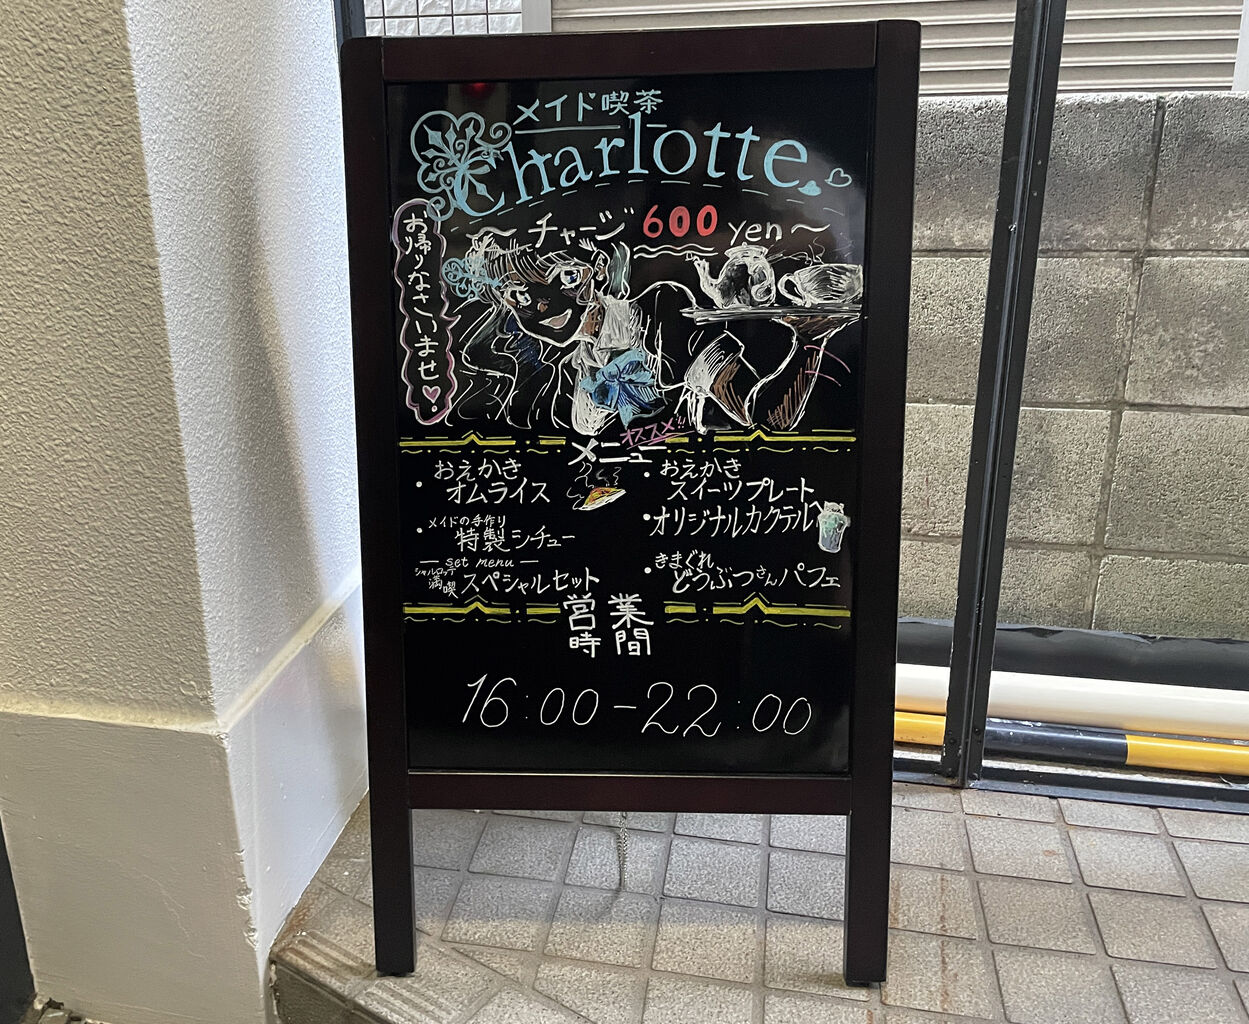 メイド喫茶
Charlotte
〜チャージ 600 yen〜
お帰りなさいませ♡
オススメ!!
メニュー
・おえかき
オムライス
・メイドの手作り
特製シチュー
— set menu —
シャルロッテ
満喫 スペシャルセット
・おえかき
スイーツプレート
・オリジナルカクテル
・きまぐれ
どうぶつさんパフェ
営業
時間
16:00-22:00